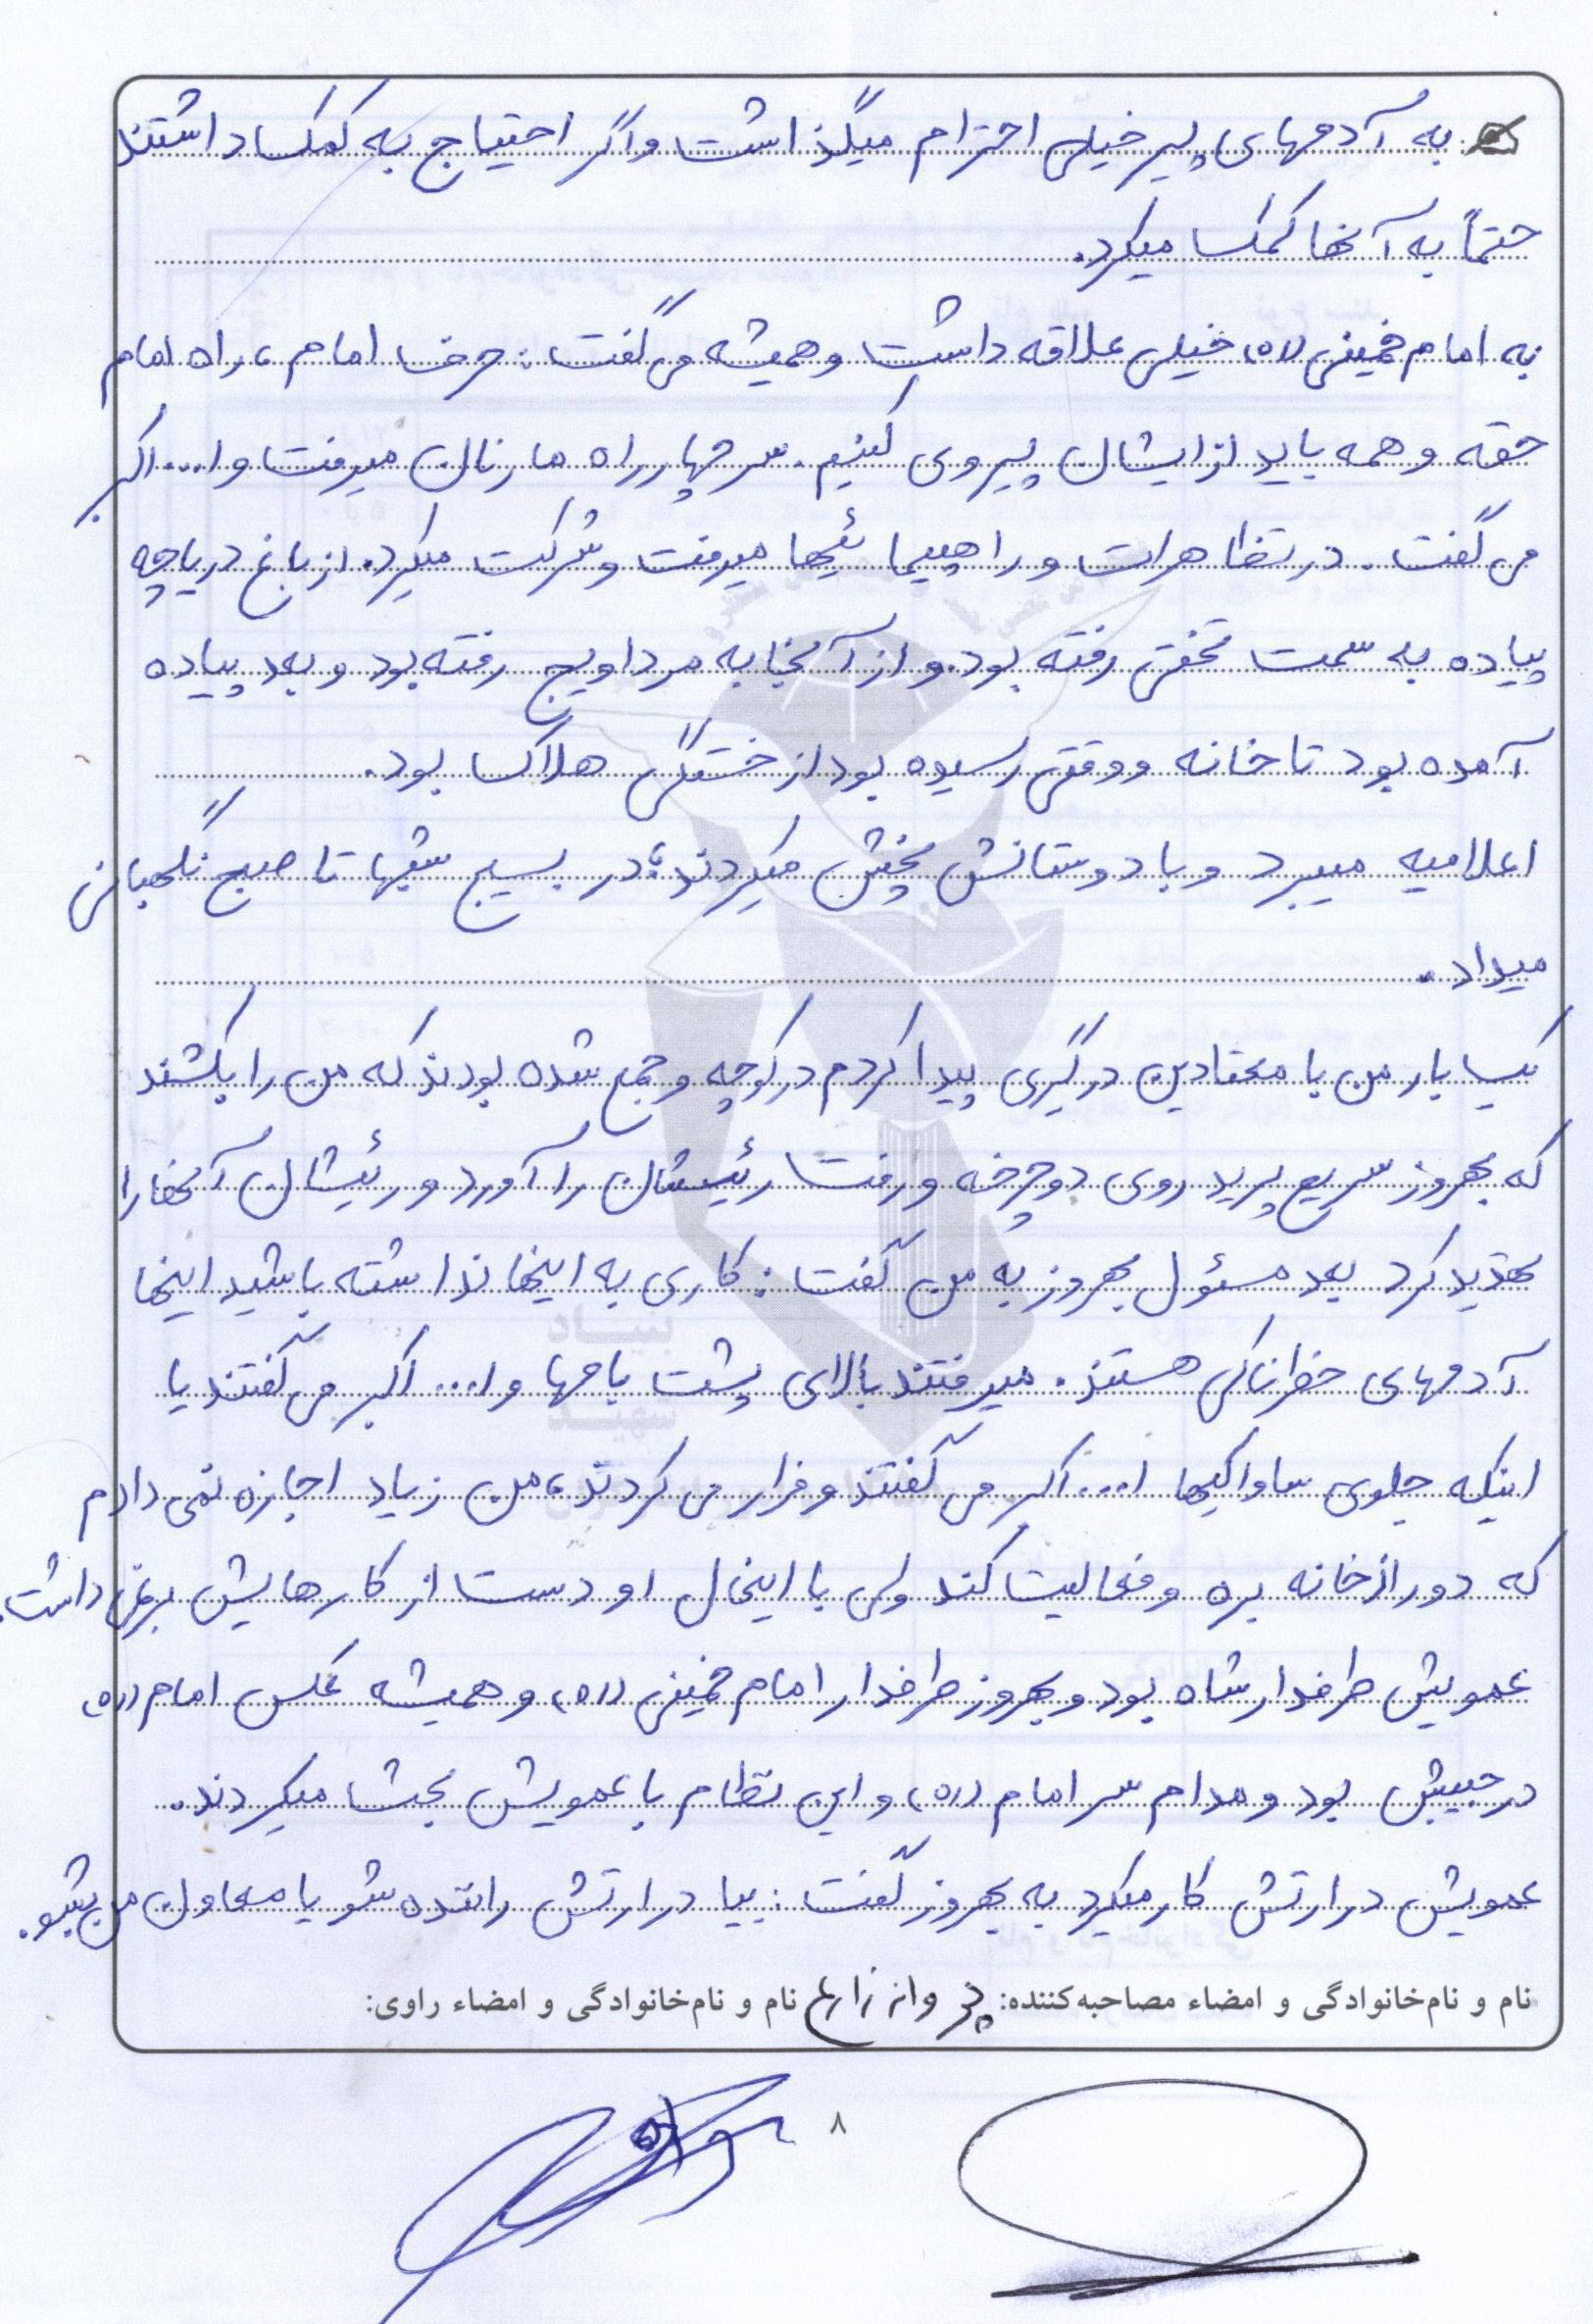 به آدمهای پیر خیلی احترام میگذاشت و اگر احتیاج به کمک داشتند
حتماً به آنها کمک میکرد.
به امام خمینی (ره) خیلی علاقه داشت و همیشه می گفت: حرف امام، راه امام
حقه و همه باید از ایشان پیروی کنیم. سر چهار راه مارنان میرفت و ا... اکبر
می گفت. در تظاهرات و راهپیمائیها میرفت و شرکت میکرد. از باغ دریاچه
پیاده به سمت تختی رفته بود و از آنجا به مرداویج رفته بود و بعد پیاده
آمده بود تا خانه و وقتی رسیده بود از خستگی هلاک بود.
اعلامیه میبرد و با دوستانش پخش میکردند، در بسیج شبها تا صبح نگهبانی
میداد.
یک بار من با معتادین درگیری پیدا کردم در کوچه و جمع شده بودند که من را بکشند
که بهروز سریع پرید روی دوچرخه و رفت رئیسشان را آورد و رئیشان آنها را
تهدید کرد بعد مسئول بهروز به من گفت: کاری به اینها نداشته باشید اینها
آدمهای خطرناکی هستند. میرفتند بالای پشت بامها و ا... اکبر می گفتند یا
اینکه جلوی ساواکیها ا... اکبر می گفتند و فرار می کردند، من زیاد اجازه نمی دادم
که دور از خانه بره و فعالیت کند ولی با اینحال او دست از کارهایش برنمی داشت.
عمویش طرفدار شاه بود و بهروز طرفدار امام خمینی (ره) و همیشه عکس امام (ره)
در جیبش بود و مدام سر امام (ره) و این نظام با عمویش بحث میکردند.
عمویش در ارتش کار میکرد به بهروز گفت: بیا در ارتش راننده شو یا معاون من بشو.
نام و نام‌خانوادگی و امضاء مصاحبه‌کننده: نام و نام‌خانوادگی و امضاء راوی:
۸